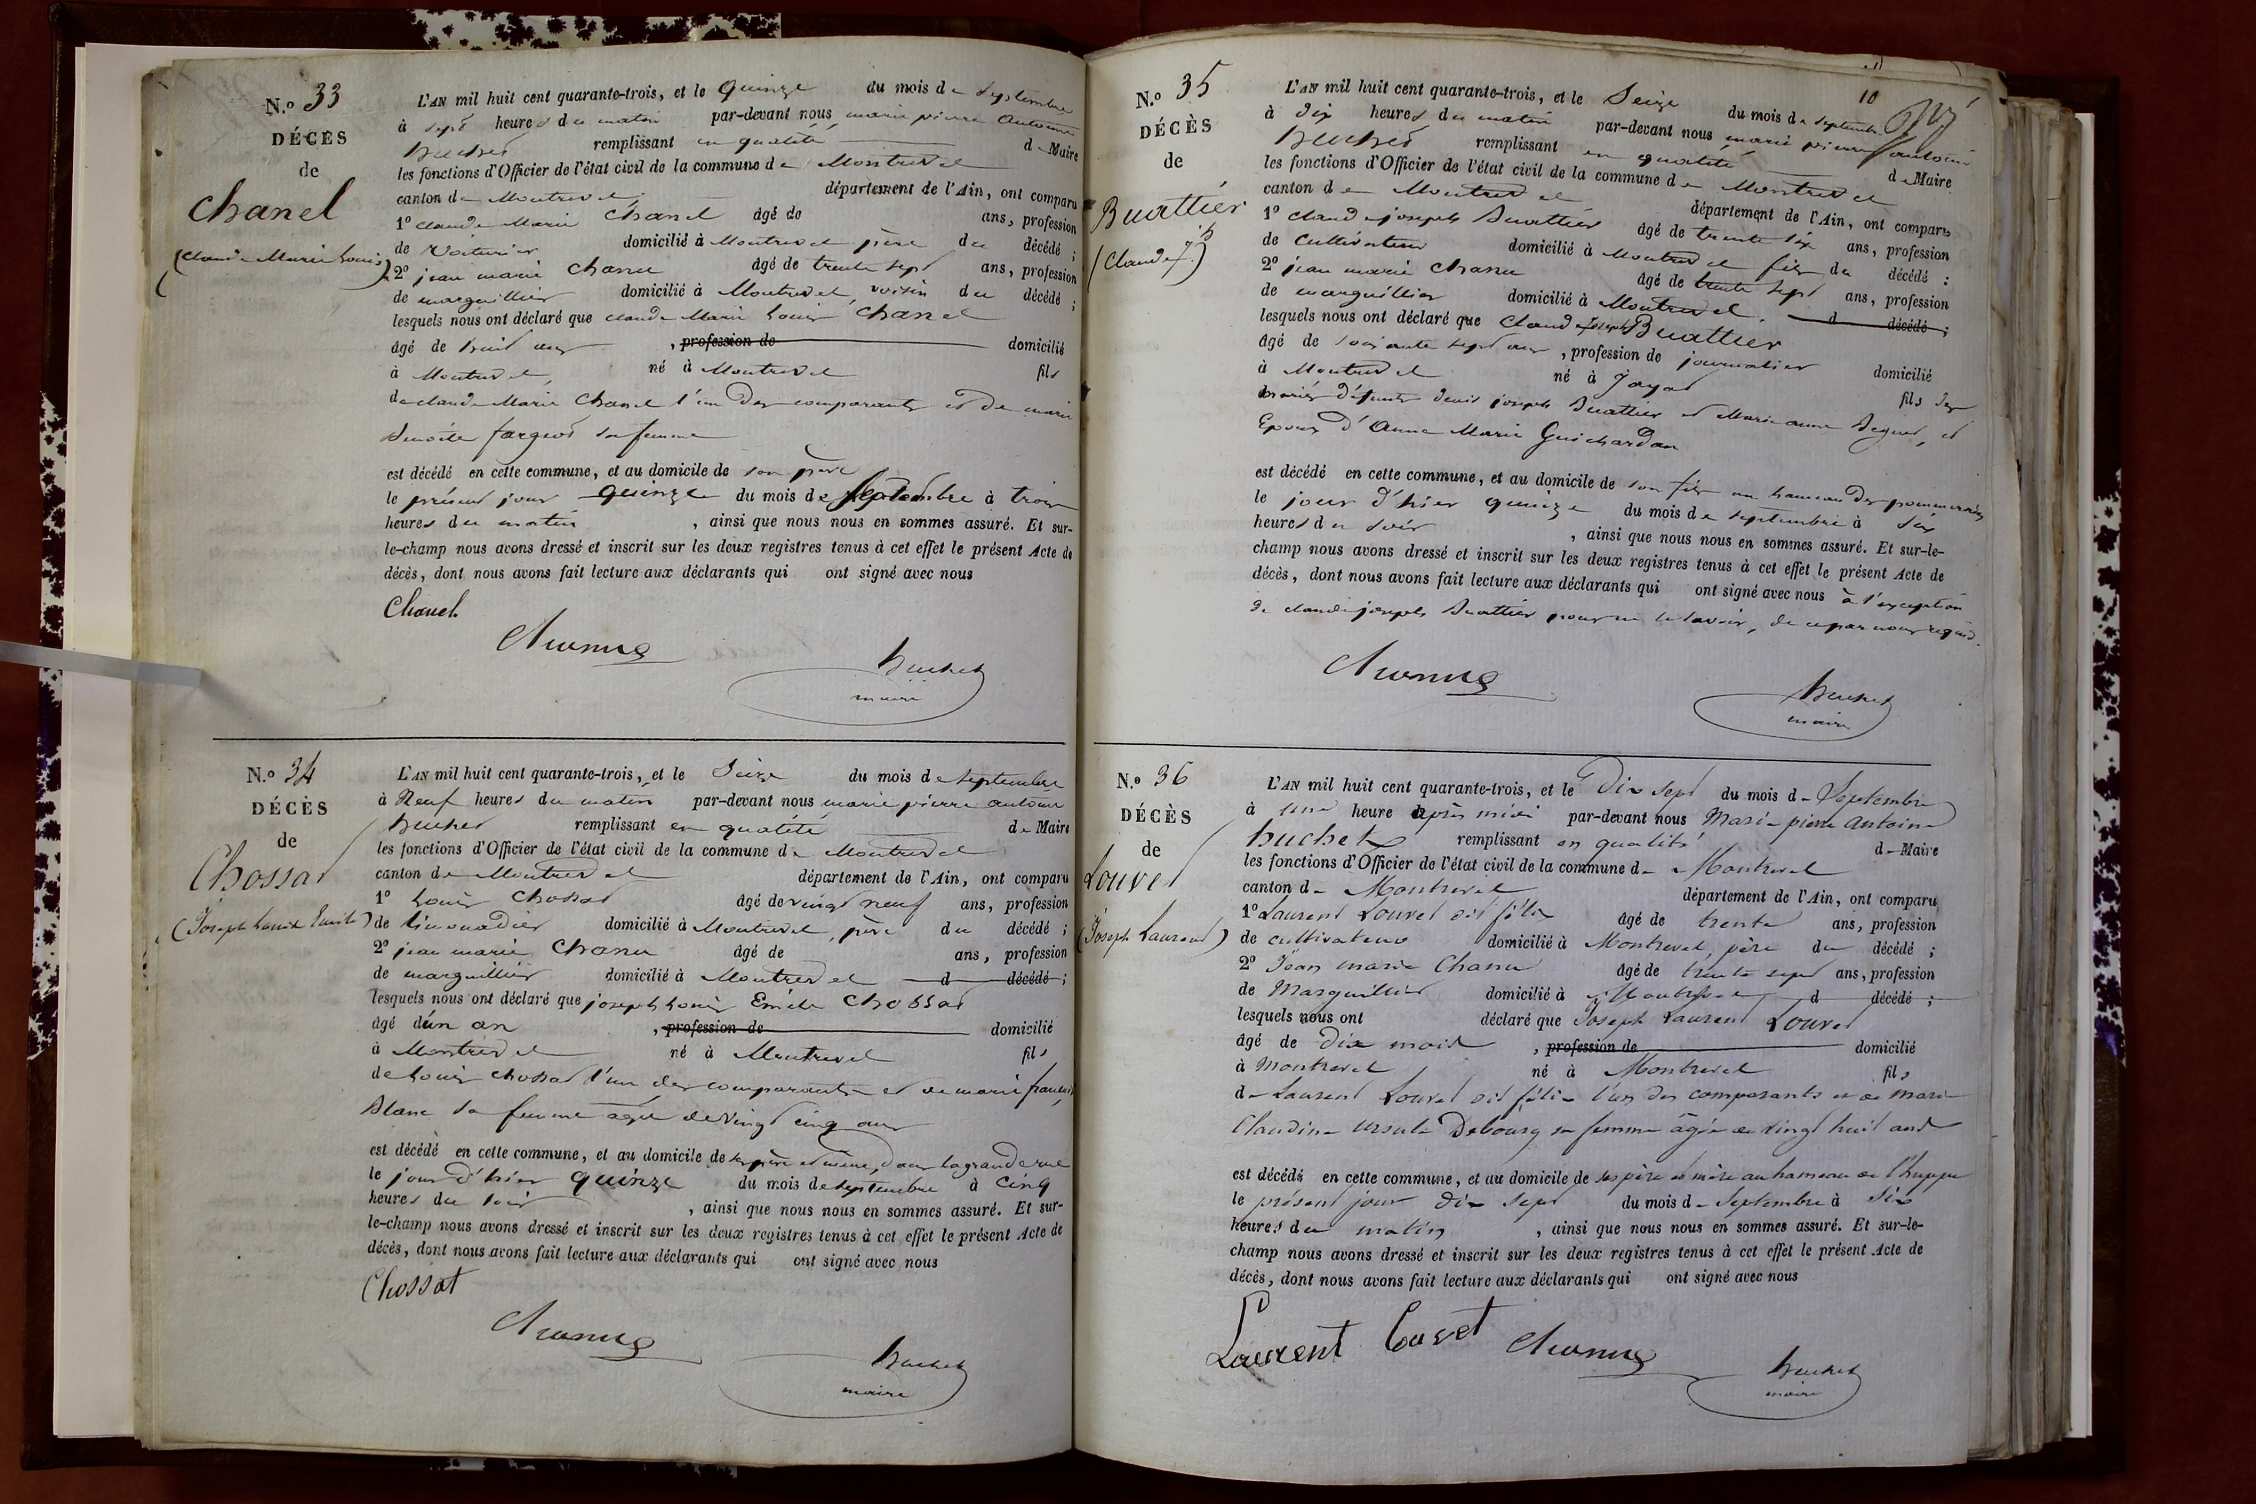 N.º 33
DÉCÈS
de
Chanel
(Claude Marie Louis)
L'AN mil huit cent quarante-trois, et le quinze du mois de Septembre
à sept heures du matin par-devant nous marie pierre antoine
huchet remplissant en qualité de Maire
les fonctions d'Officier de l'état civil de la commune de Montrevel
canton de Montrevel département de l'Ain, ont comparu
1º claude Marie Chanel âgé de ans, profession
de Voiturier domicilié à Montrevel père du décédé ;
2º jean marie Chanu âgé de trente sept ans, profession
de marguillier domicilié à Montrevel, voisin du décédé ;
lesquels nous ont déclaré que claude Marie Louis Chanel
âgé de huit ans , profession de domicilié
à Montrevel, né à Montrevel fils
de claude Marie Chanel l'un des comparants et de marie
Benoite fargeot sa femme
est décédé en cette commune, et au domicile de son père
le présent jour quinze du mois de septembre à trois
heures du matin , ainsi que nous nous en sommes assuré. Et sur-
le-champ nous avons dressé et inscrit sur les deux registres tenus à cet effet le présent Acte de
décès, dont nous avons fait lecture aux déclarants qui ont signé avec nous
Chanel
Chanu
huchet
maire
N.º 34
DÉCÈS
de
Chossat
(Joseph Louis Emile)
L'AN mil huit cent quarante-trois, et le Seize du mois de septembre
à Neuf heures du matin par-devant nous marie pierre antoine
huchet remplissant en qualité de Maire
les fonctions d'Officier de l'état civil de la commune de Montrevel
canton de Montrevel département de l'Ain, ont comparu
1º Louis Chossat âgé de vingt neuf ans, profession
de limonadier domicilié à Montrevel, père du décédé ;
2º jean marie Chanu âgé de ans, profession
de marguillier domicilié à Montrevel d décédé ;
lesquels nous ont déclaré que joseph Louis Emile Chossat
âgé d'un an , profession de domicilié
à Montrevel né à Montrevel fils
de Louis chossat l'un des comparants et de marie françoise
Blanc sa femme agée de vingt cinq ans
est décédé en cette commune, et au domicile de ses père et mère, dans la grande rue
le jour d'hier quinze du mois de septembre à cinq
heures du soir , ainsi que nous nous en sommes assuré. Et sur-
le-champ nous avons dressé et inscrit sur les deux registres tenus à cet effet le présent Acte de
décès, dont nous avons fait lecture aux déclarants qui ont signé avec nous
Chossat
Chanu
huchet
maire
10
N.º 35
DÉCÈS
de
Buattier
(Claude jh)
L'AN mil huit cent quarante-trois, et le Seize du mois de septembre
à dix heures du matin par-devant nous marie pierre antoine
huchet remplissant en qualité de Maire
les fonctions d'Officier de l'état civil de la commune de Montrevel
canton de Montrevel département de l'Ain, ont comparu
1º claude joseph Buattier âgé de trente six ans, profession
de cultivateur domicilié à Montrevel fils du décédé ;
2º jean marie Chanu âgé de trente sept ans, profession
de marguillier domicilié à Montrevel d décédé ;
lesquels nous ont déclaré que Claude joseph Buattier
âgé de soixante sept ans , profession de journalier domicilié
à Montrevel né à Jayat fils des
mariés défunts denis joseph Buattier et Marie anne , et
Epoux d'Anne Marie Guichardan
est décédé en cette commune, et au domicile de son fils au hameau des
le jour d'hier quinze du mois de septembre à six
heures du soir , ainsi que nous nous en sommes assuré. Et sur-le-
champ nous avons dressé et inscrit sur les deux registres tenus à cet effet le présent Acte de
décès, dont nous avons fait lecture aux déclarants qui ont signé avec nous à l'exception
de claude joseph Buattier pour ne le savoir, de ce par nous requis.
Chanu
huchet
maire
N.º 36
DÉCÈS
de
Louvet
(Joseph Laurent)
L'AN mil huit cent quarante-trois, et le Dix sept du mois de Septembre
à une heure après midi par-devant nous Marie pierre antoine
huchet remplissant en qualité de Maire
les fonctions d'Officier de l'état civil de la commune de Montrevel
canton de Montrevel département de l'Ain, ont comparu
1º Laurent Louvet dit félix âgé de trente ans, profession
de cultivateur domicilié à Montrevel, père du décédé ;
2º Jean marie Chanu âgé de trente sept ans, profession
de Marguillier domicilié à Montrevel d décédé ;
lesquels nous ont déclaré que Joseph Laurent Louvet
âgé de dix mois , profession de domicilié
à Montrevel né à Montrevel fils
de Laurent Louvet dit félix l'un des comparants et de marie
Claudine Ursule Debourg sa femme âgée de vingt huit ans
est décédé en cette commune, et au domicile de ses père et mère au hameau de l'huppe
le présent jour dix sept du mois de Septembre à six
heures du matin , ainsi que nous nous en sommes assuré. Et sur-le-
champ nous avons dressé et inscrit sur les deux registres tenus à cet effet le présent Acte de
décès, dont nous avons fait lecture aux déclarants qui ont signé avec nous
Laurent Louvet
Chanu
huchet
maire